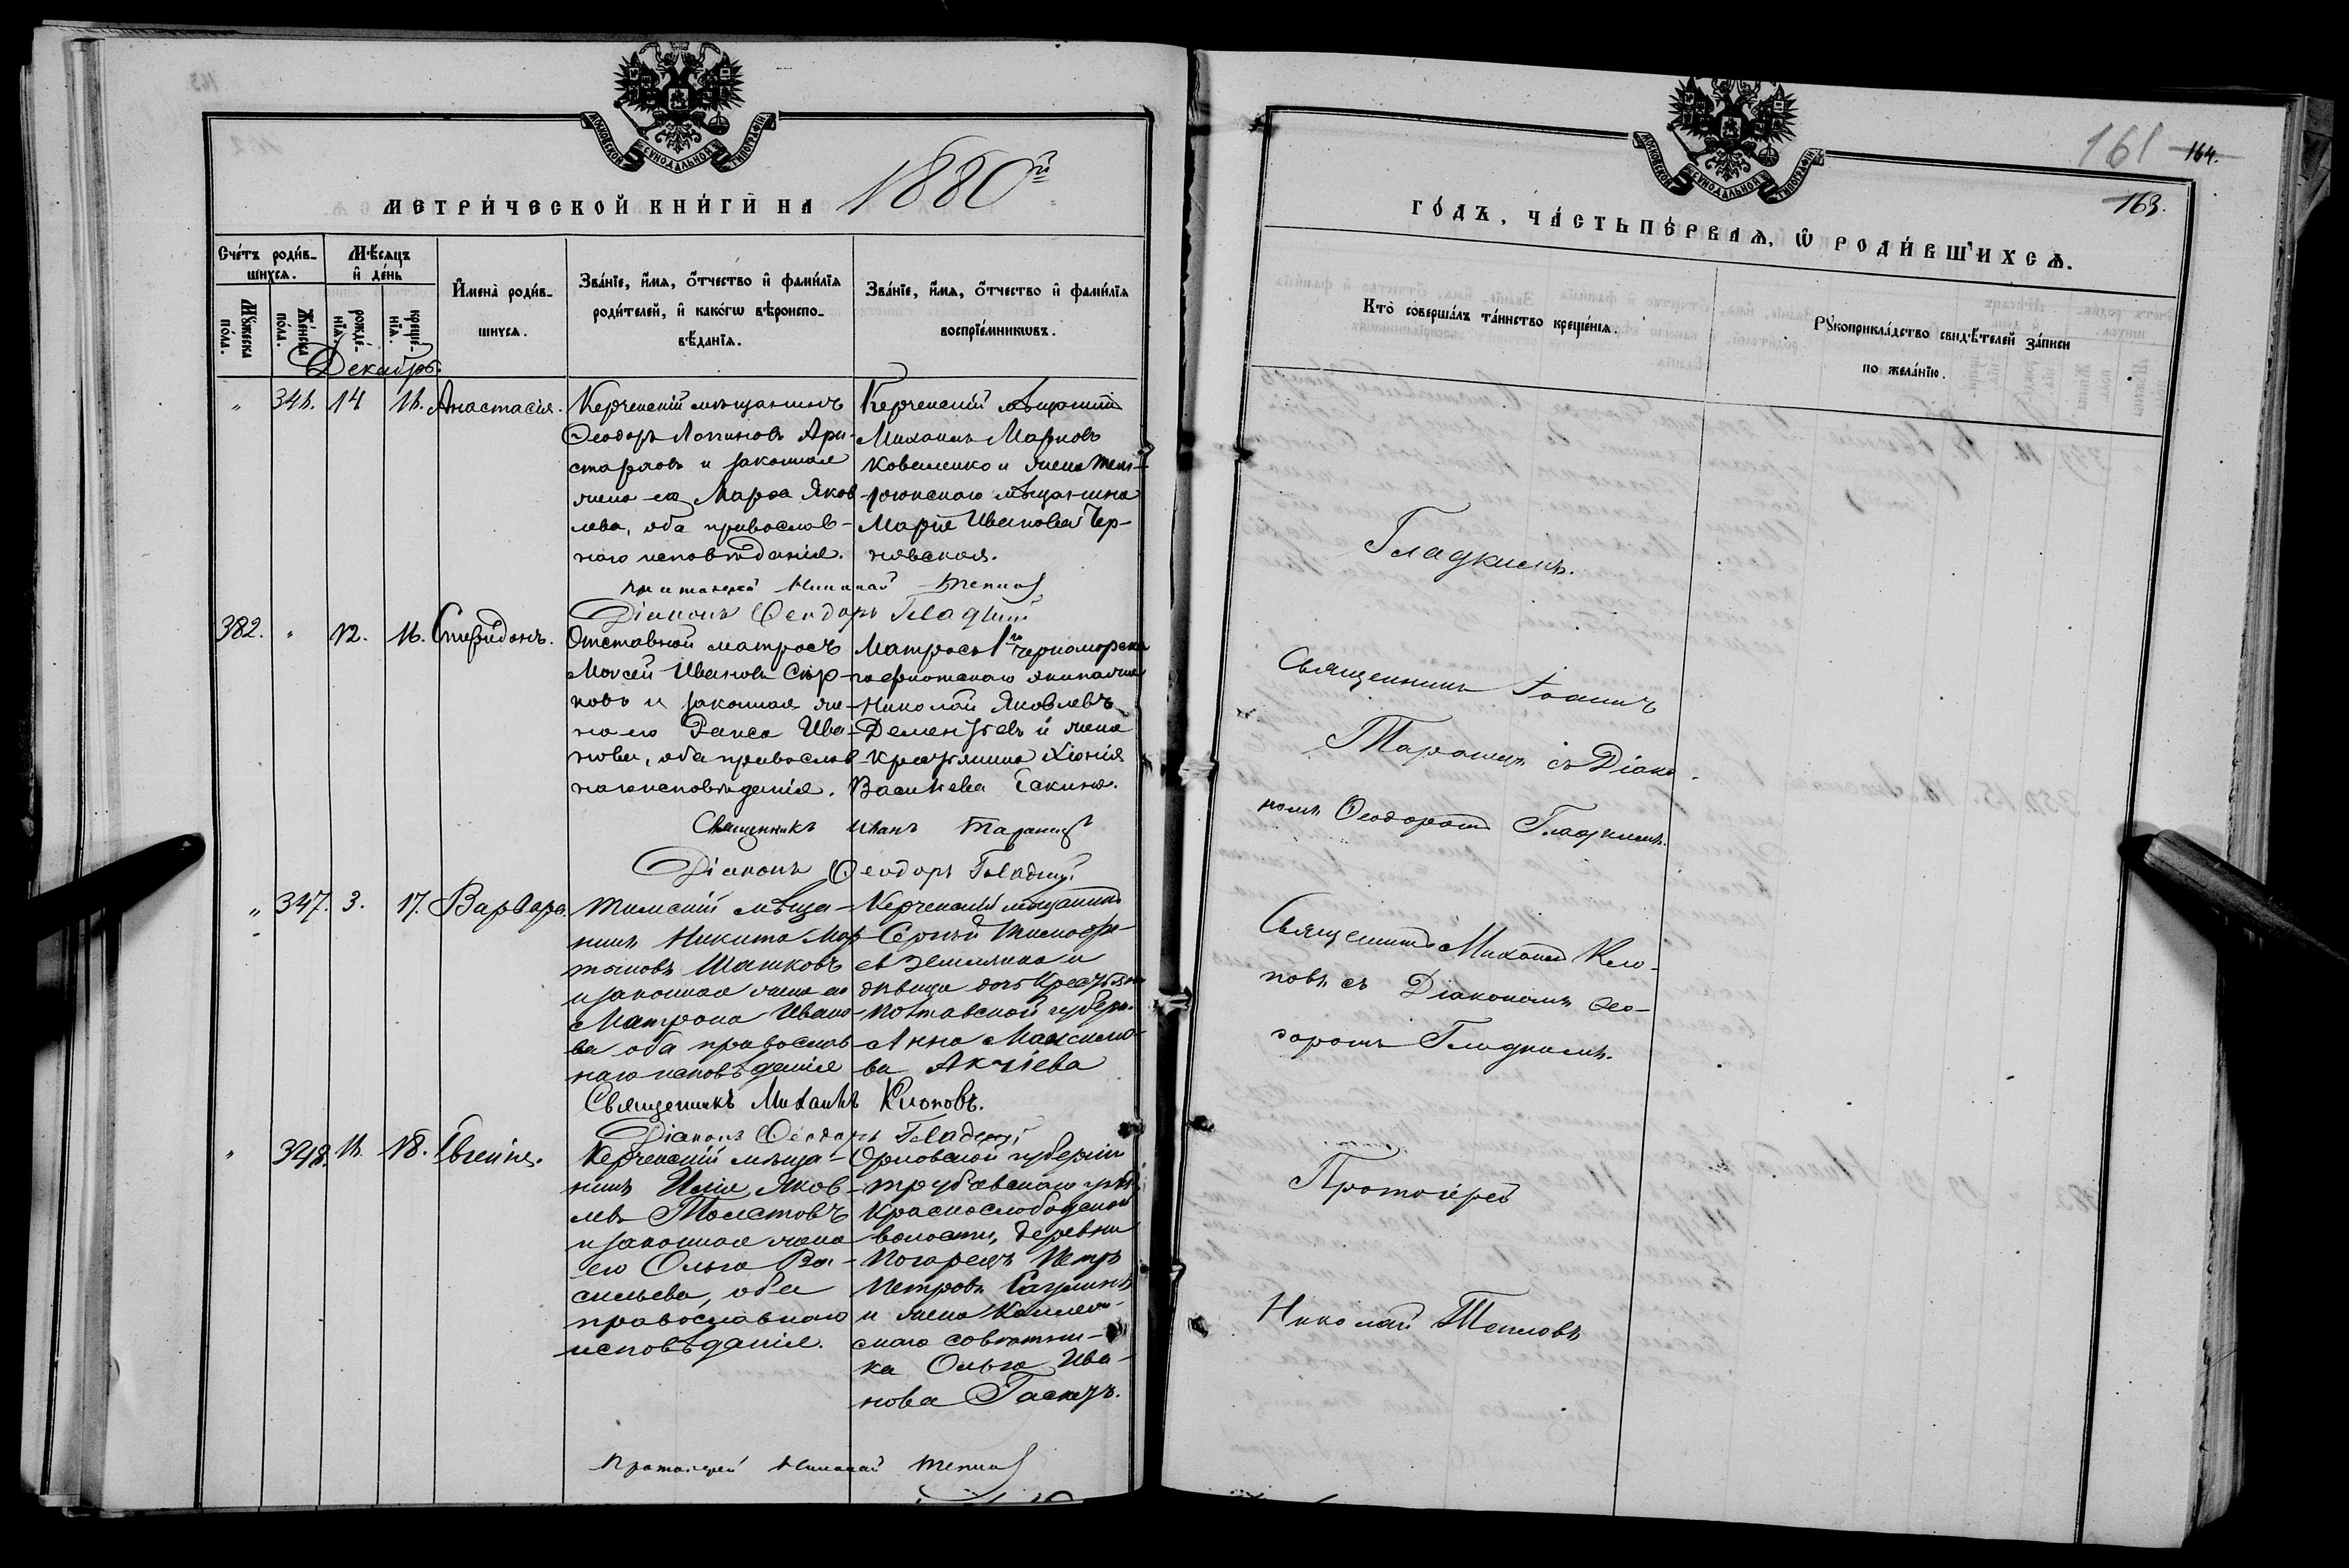 МОСКОВСКОЙ СѴНОДАЛЬНОЙ ТИПОГРАФІИ
МЕТРИ́ЧЕСКОЙ КНИ́ГИ НА 1880й
Сче́тъ роди́в-
шихся.
Мѣ́сяцъ
и҆ де́нь
Мꙋ́жеска
по́ла.
Же́нска
по́ла.
рожде́-
нїѧ.
креще́-
нїѧ.
И҆мена̀ роди́в-
шихся.
Зва́нїе, и҆́мѧ, ѻ҆́тчество и҆ фами́лїѧ
роди́телей, и҆ како́гѡ вѣроиспо-
вѣ́данїѧ.
Зва́нїе, и҆́мѧ, ѻ҆́тчество и҆ фами́лїѧ
воспрїе́мникѡвъ.
Декабрь.
" 346. 14 16. Анастасія.
Керченскій мѣщанинъ
Ѳеодоръ Логиновъ Ари-
старховъ и законная
жена его Марѳа Яков
лева, оба православ-
наго исповѣданія.
Керченскій мѣщанинъ
Михаилъ Марковъ
Коваленко и жена Тем-
рюкскаго мѣщанина
Марія Иванова Чер-
нявская.
Протоіерей Николай Тепловъ
Діаконъ Ѳеодоръ Гладкій
382. " 12. 16. Спиридонъ.
Отставной матросъ
Моисей Ивановъ
и законная же-
на его Раиса Ива-
нова, оба православ
наго исповѣданія.
Матросъ 1го Черноморска
го флотскаго экипажа
Николай Яковлевъ
Дементьевъ и жена
крестьянина Хіонія
Васильева Ескина.
Священникъ Иванъ Таранецъ
Діаконъ Ѳеодоръ Гладкій
" 347. 3. 17. Варвара.
Тимскій мѣща-
нинъ Никита Мар
тыновъ Шашковъ
и законная жена его
Матрона Ивано-
ва оба православ
наго исповѣданія
Керченскій мѣщанинъ
Сергѣй Тимофе-
евъ Земляной и
дѣвица дочь крестьян
Полтавской губерн.
Анна Максимо-
ва
Священникъ Михаилъ Клоповъ.
Діаконъ Ѳеодоръ Гладкій
" 348. 16. 18. Евгенія.
Керченскій мѣща-
нинъ Илія Яков-
левъ Толстовъ
и законная жена
его Ольга Ва-
сильева, оба
православнаго
исповѣданія.
Орловской губерніи
Трубчевскаго уѣзда
Краснослободской
волости, деревни
Погарецъ Петръ
Петровъ
и жена Коллеж-
скаго совѣтни-
ка Ольга Ива-
нова
Протоіерей Николай Тепловъ
МОСКОВСКОЙ СѴНОДАЛЬНОЙ ТИПОГРАФІИ
161 164.
163.
ГО́ДЪ, ЧА́СТЬ ПЕ́РВАѦ, Ѡ҆ РОДИ́ВШИХСѦ.
Кто̀ соверша́лъ та́инство креще́нїѧ.
Рꙋкоприкла́дство свидѣ́телей за́писи
по жела́нїю.
Гладкимъ.
Священникъ Іоаннъ
Таранецъ съ Діако-
номъ Ѳеодоромъ Гладкимъ.
Священникъ Михаилъ Кло-
повъ съ Діакономъ Ѳео-
доромъ Гладкимъ.
Протоіерей
Николай Тепловъ